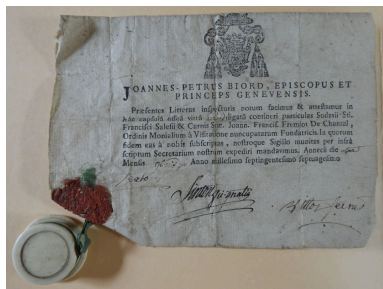 JOANNES-PETRUS BIORD, EPISCOPUS ET
PRINCEPS GENEVENSIS.
Præsentes Litteras inspecturis notum facimus & attestamur in
hâc capsulâ nostrâ vittâ ligatâ contineri particulas Sudarii Sti.
Francisci Salesii & Carnis Stæ. Joann. Francisc. Fremiot De Chantal,
Ordinis Monialium à Visitatione nuncupatarum Fundatricis. In quorum
fidem eas à nobis subscriptas, nostroque Sigillo munitas per infrà
scriptum Secretarium nostrum expediri mandavimus. Annecii die
Mensis Anno millesimo septingentesimo septuagesimo